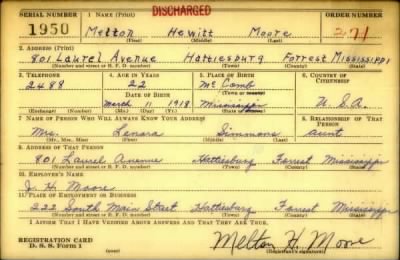 DISCHARGED
SERIAL NUMBER 1. NAME (Print) ORDER NUMBER
1950 Melton Hewitt Moore 271
(First) (Middle) (Last)
2. ADDRESS (Print)
801 Laurel Avenue Hattiesburg Forrest Mississippi
(Number and street or R. F. D. number) (Town) (County) (State)
3. TELEPHONE 4. AGE IN YEARS 5. PLACE OF BIRTH 6. COUNTRY OF CITIZENSHIP
2488 22 McComb
DATE OF BIRTH (Town or county)
March 11 1918 Mississippi U.S.A.
(Exchange) (Number) (Mo.) (Day) (Yr.) (State or country)
7. NAME OF PERSON WHO WILL ALWAYS KNOW YOUR ADDRESS 8. RELATIONSHIP OF THAT PERSON
Mrs. Lenora Simmons aunt
(Mr., Mrs., Miss) (First) (Middle) (Last)
9. ADDRESS OF THAT PERSON
801 Laurel Avenue Hattiesburg Forrest Mississippi
(Number and street or R. F. D. number) (Town) (County) (State)
10. EMPLOYER'S NAME
J. H. Moore
11. PLACE OF EMPLOYMENT OR BUSINESS
222 South Main Street Hattiesburg Forrest Mississippi
(Number and street or R. F. D. number) (Town) (County) (State)
I AFFIRM THAT I HAVE VERIFIED ABOVE ANSWERS AND THAT THEY ARE TRUE.
REGISTRATION CARD
D. S. S. Form 1 Melton H. Moore
(Registrant's signature)